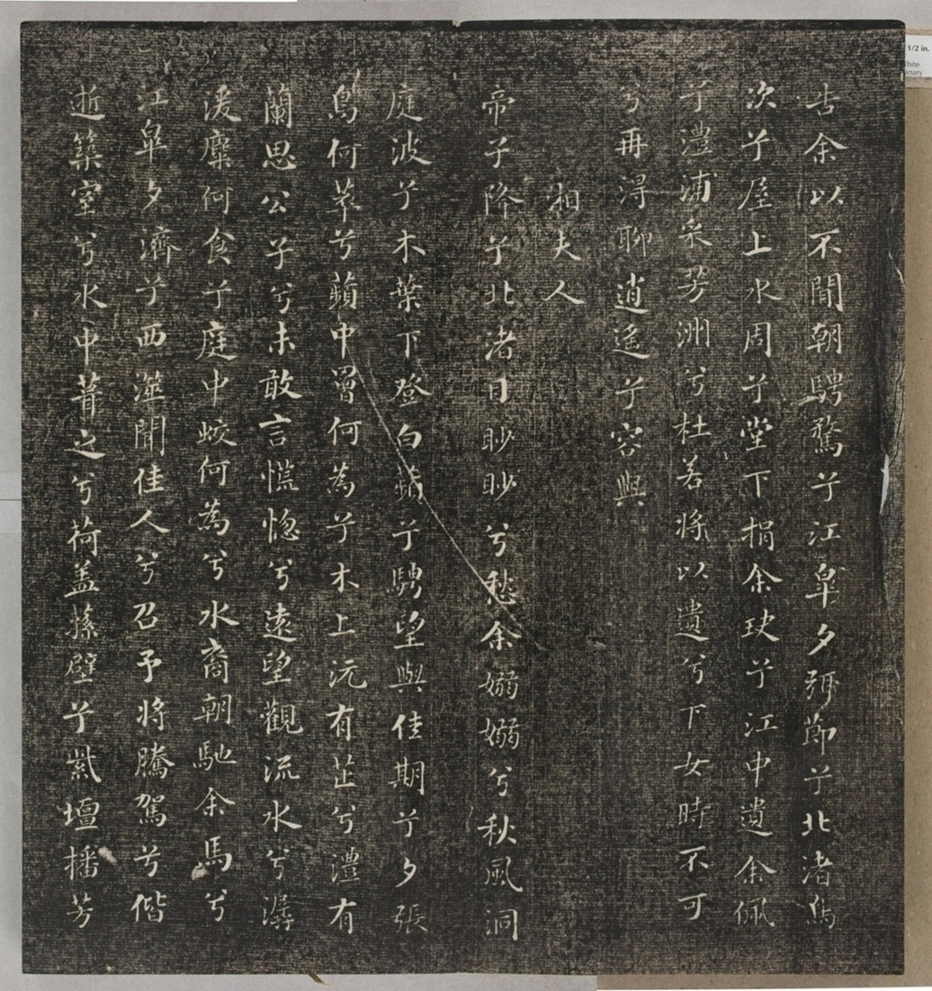 告余以不閒朝騁騖兮江臯夕弭節兮北渚鳥
次兮屋上水周兮堂下捐余玦兮江中遺余佩
兮澧浦采芳洲兮杜若將以遺兮下女時不可
兮再淂聊逍遙兮容與
湘夫人
帝子降兮北渚目眇眇兮愁余嫋嫋兮秋風洞
庭波兮木葉下登白蘋兮騁望與佳期兮夕張
鳥何萃兮蘋中罾何為兮木上沅有茝兮澧有
蘭思公子兮未敢言慌惚兮遠望觀流水兮潺
湲麋何食兮庭中蛟何為兮水裔朝馳余馬兮
江臯夕濟兮西澨聞佳人兮召予將騰駕兮偕
逝築室兮水中葺之兮荷盖蓀壁兮紫壇播芳
1/2 in.